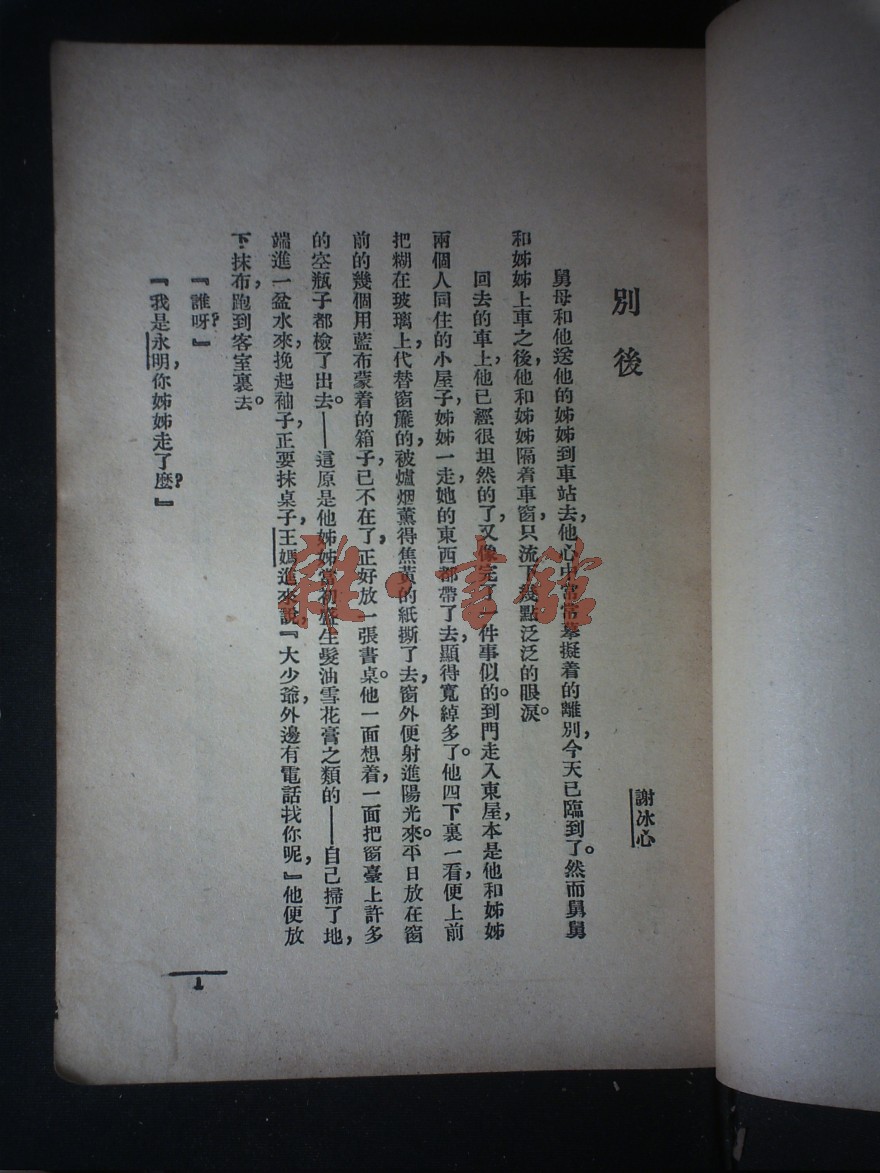 別後
謝冰心
舅母和他送他的姊姊到車站去，他心中常常摹擬着的離別，今天已臨到了。然而舅舅
和姊姊上車之後，他和姊姊隔着車窗，只流下幾點泛泛的眼淚。
回去的車上，他已經很坦然的了，又像完了一件事似的。到門走入東屋，本是他和姊姊
兩個人同住的小屋子，姊姊一走，她的東西都帶了去，顯得寬綽多了。他四下裏一看，便上前
把糊在玻璃上代替窗簾的，被爐烟薰得焦黃的紙撕了去，窗外便射進陽光來。平日放在窗
前的幾個用藍布蒙着的箱子，已不在了，正好放一張書桌。他一面想着，一面把窗臺上許多
的空瓶子都檢了出去。——這原是他姊姊當初盛生髮油雪花膏之類的——自己掃了地，
端進一盆水來，挽起袖子，正要抹桌子，王媽進來說，『大少爺，外邊有電話找你呢，』他便放
下抹布，跑到客室裏去。
『誰呀？』
『我是永明，你姊姊走了麼？』
1
雜·書館